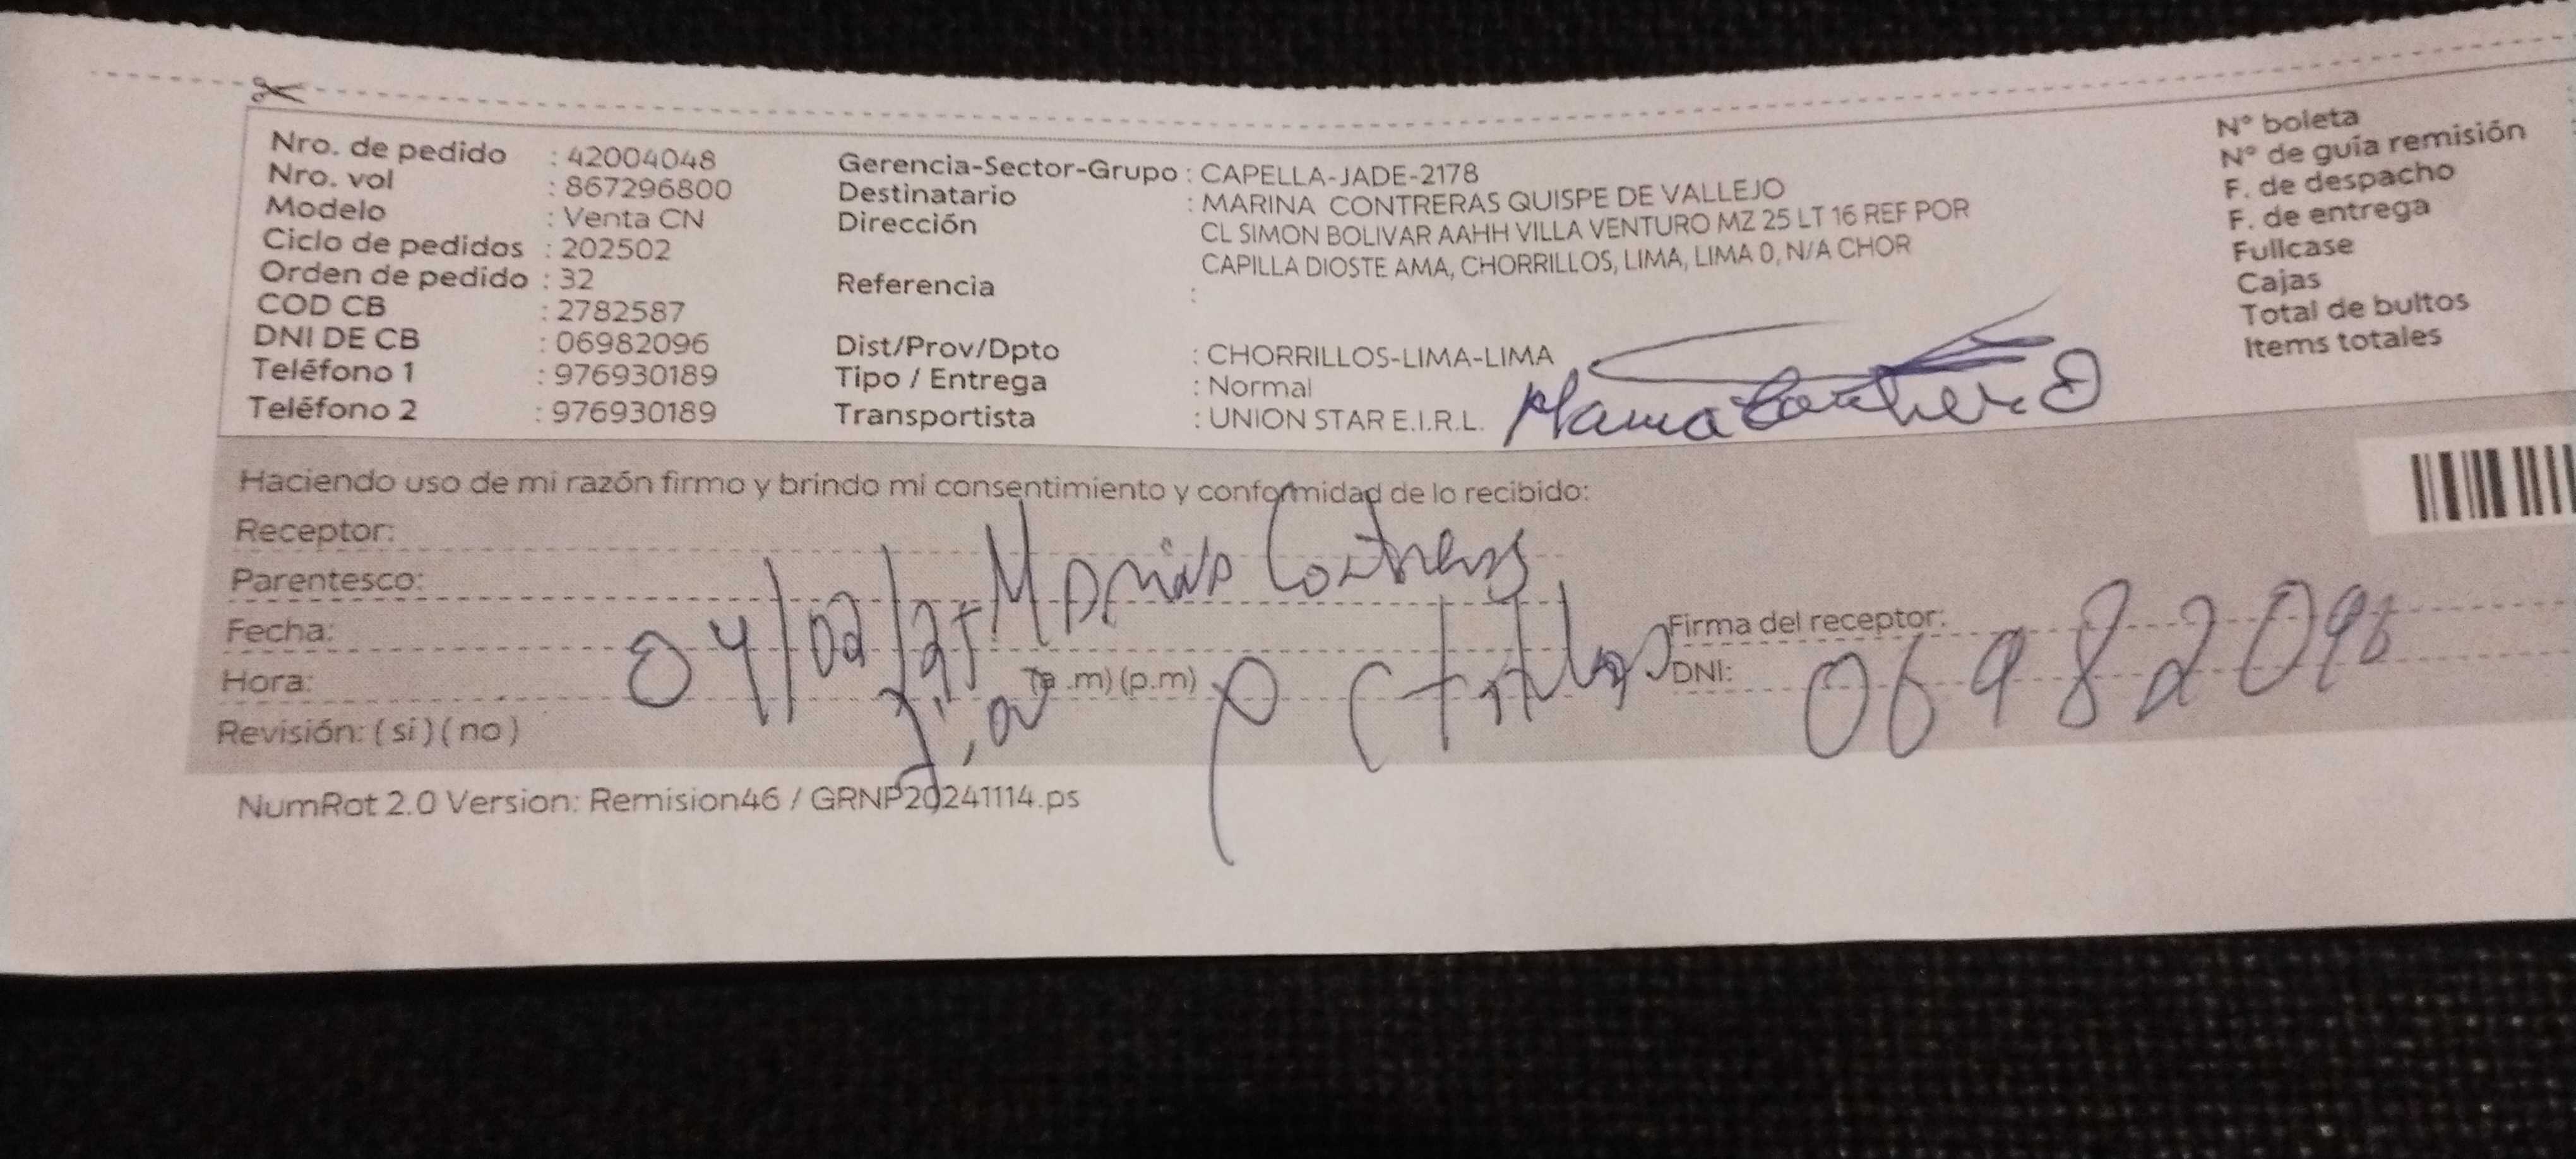 Nro. de pedido : 42004048
Nro. vol : 867296800
Modelo : Venta CN
Ciclo de pedidos : 202502
Orden de pedido : 32
COD CB : 2782587
DNI DE CB : 06982096
Teléfono 1 : 976930189
Teléfono 2 : 976930189
Gerencia-Sector-Grupo : CAPELLA-JADE-2178
Destinatario : MARINA CONTRERAS QUISPE DE VALLEJO
Dirección CL SIMON BOLIVAR AAHH VILLA VENTURO MZ 25 LT 16 REF POR
CAPILLA DIOSTE AMA, CHORRILLOS, LIMA, LIMA 0, N/A CHOR
Referencia :
Dist/Prov/Dpto : CHORRILLOS-LIMA-LIMA
Tipo / Entrega : Normal
Transportista : UNION STAR E.I.R.L.
N° boleta
N° de guía remisión
F. de despacho
F. de entrega
Fullcase
Cajas
Total de bultos
Items totales
Haciendo uso de mi razón firmo y brindo mi consentimiento y conformidad de lo recibido:
Receptor:
Marina Contreras
Parentesco:
Fecha: 04/02/25
Hora: (a .m) (p.m)
Revisión: ( si ) ( no )
Firma del receptor:
DNI: 06982096
NumRot 2.0 Version: Remision46 / GRNP20241114.ps